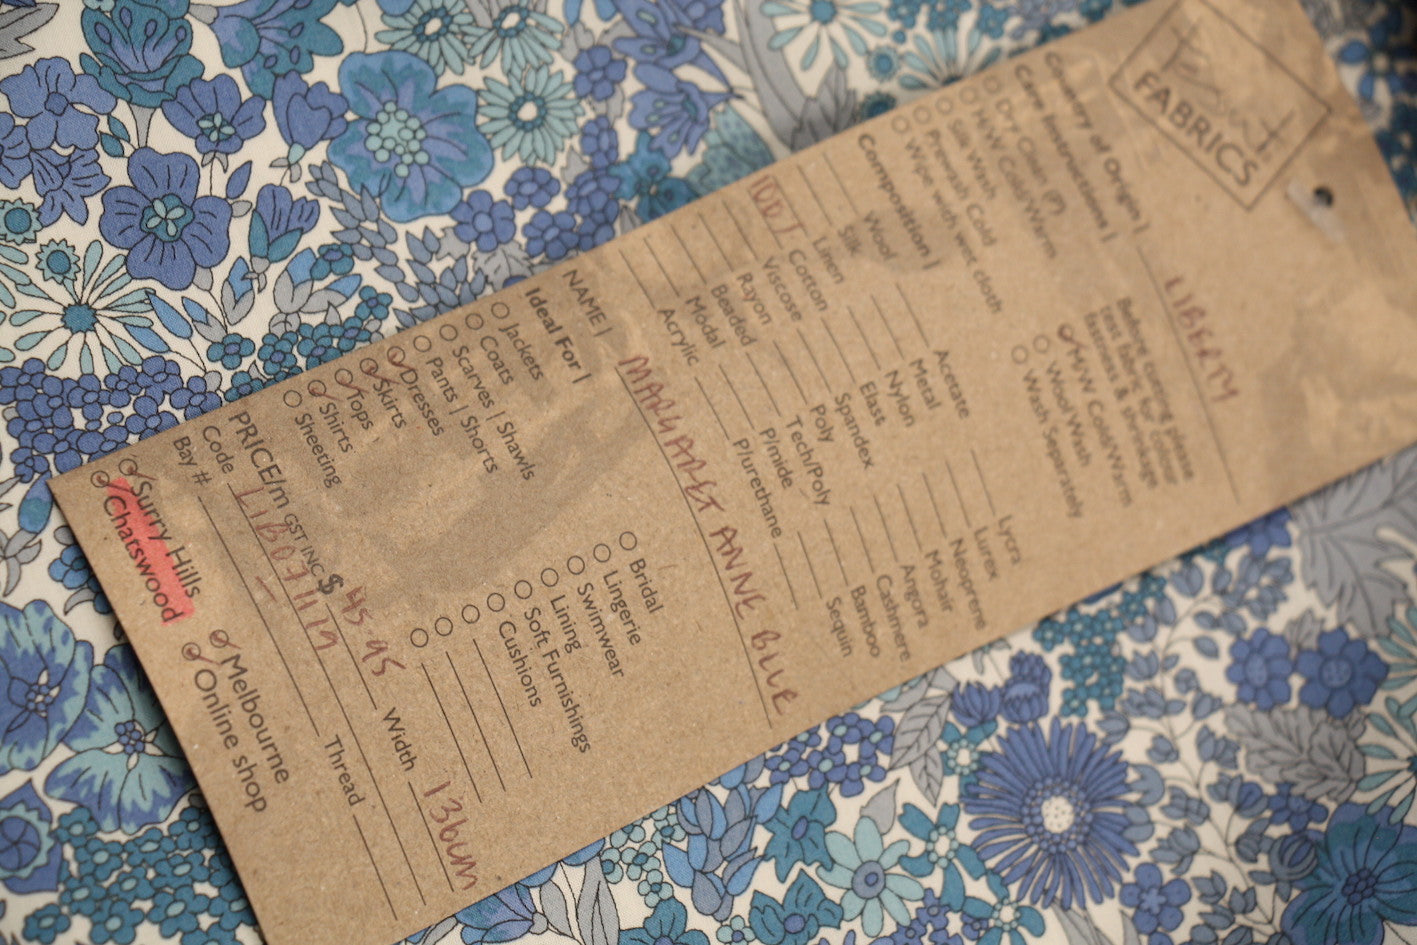 FABRICS
Country of Origin | LIBERTY
Care Instructions |
Before cutting please
test fabric for colour
fastness & shrinkage
Dry Clean (P)
H/W Cold/Warm
Silk Wash
Prewash Cold
Wipe with wet cloth
H/W Cold/Warm
Wool Wash
Wash Separately
Composition |
Wool
Silk
Linen
100% Cotton
Viscose
Rayon
Beaded
Modal
Acrylic
Acetate
Metal
Nylon
Elast
Spandex
Poly
Tech/Poly
P/mide
P/urethane
Lycra
Lurex
Neoprene
Mohair
Angora
Cashmere
Bamboo
Sequin
NAME | MARGARET ANNE BLUE
Ideal For |
Jackets
Coats
Scarves | Shawls
Pants | Shorts
Dresses
Skirts
Tops
Shirts
Sheeting
Bridal
Lingerie
Swimwear
Lining
Soft Furnishings
Cushions
PRICE/m GST INC $ 45.95 Width 136cm
Code LIB07117 Thread
Bay #
Surry Hills
Chatswood
Melbourne
Online shop